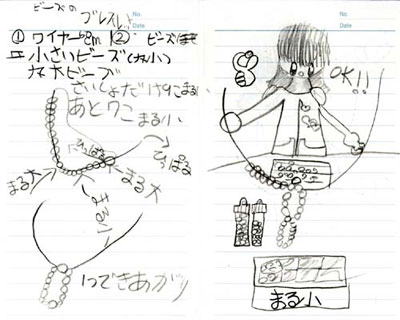 ビーズの
ブレスレット
No.
Date
① ワイヤー cm ② ビーズはさ
小さいビーズ(丸小)
大ビーズ
さいしょだけ9こまる小
あと9こ
まる小
ひっぱる
ひっぱる
まる大
まる大
まる小
1つできあがり
No.
Date
OK!!
まる小